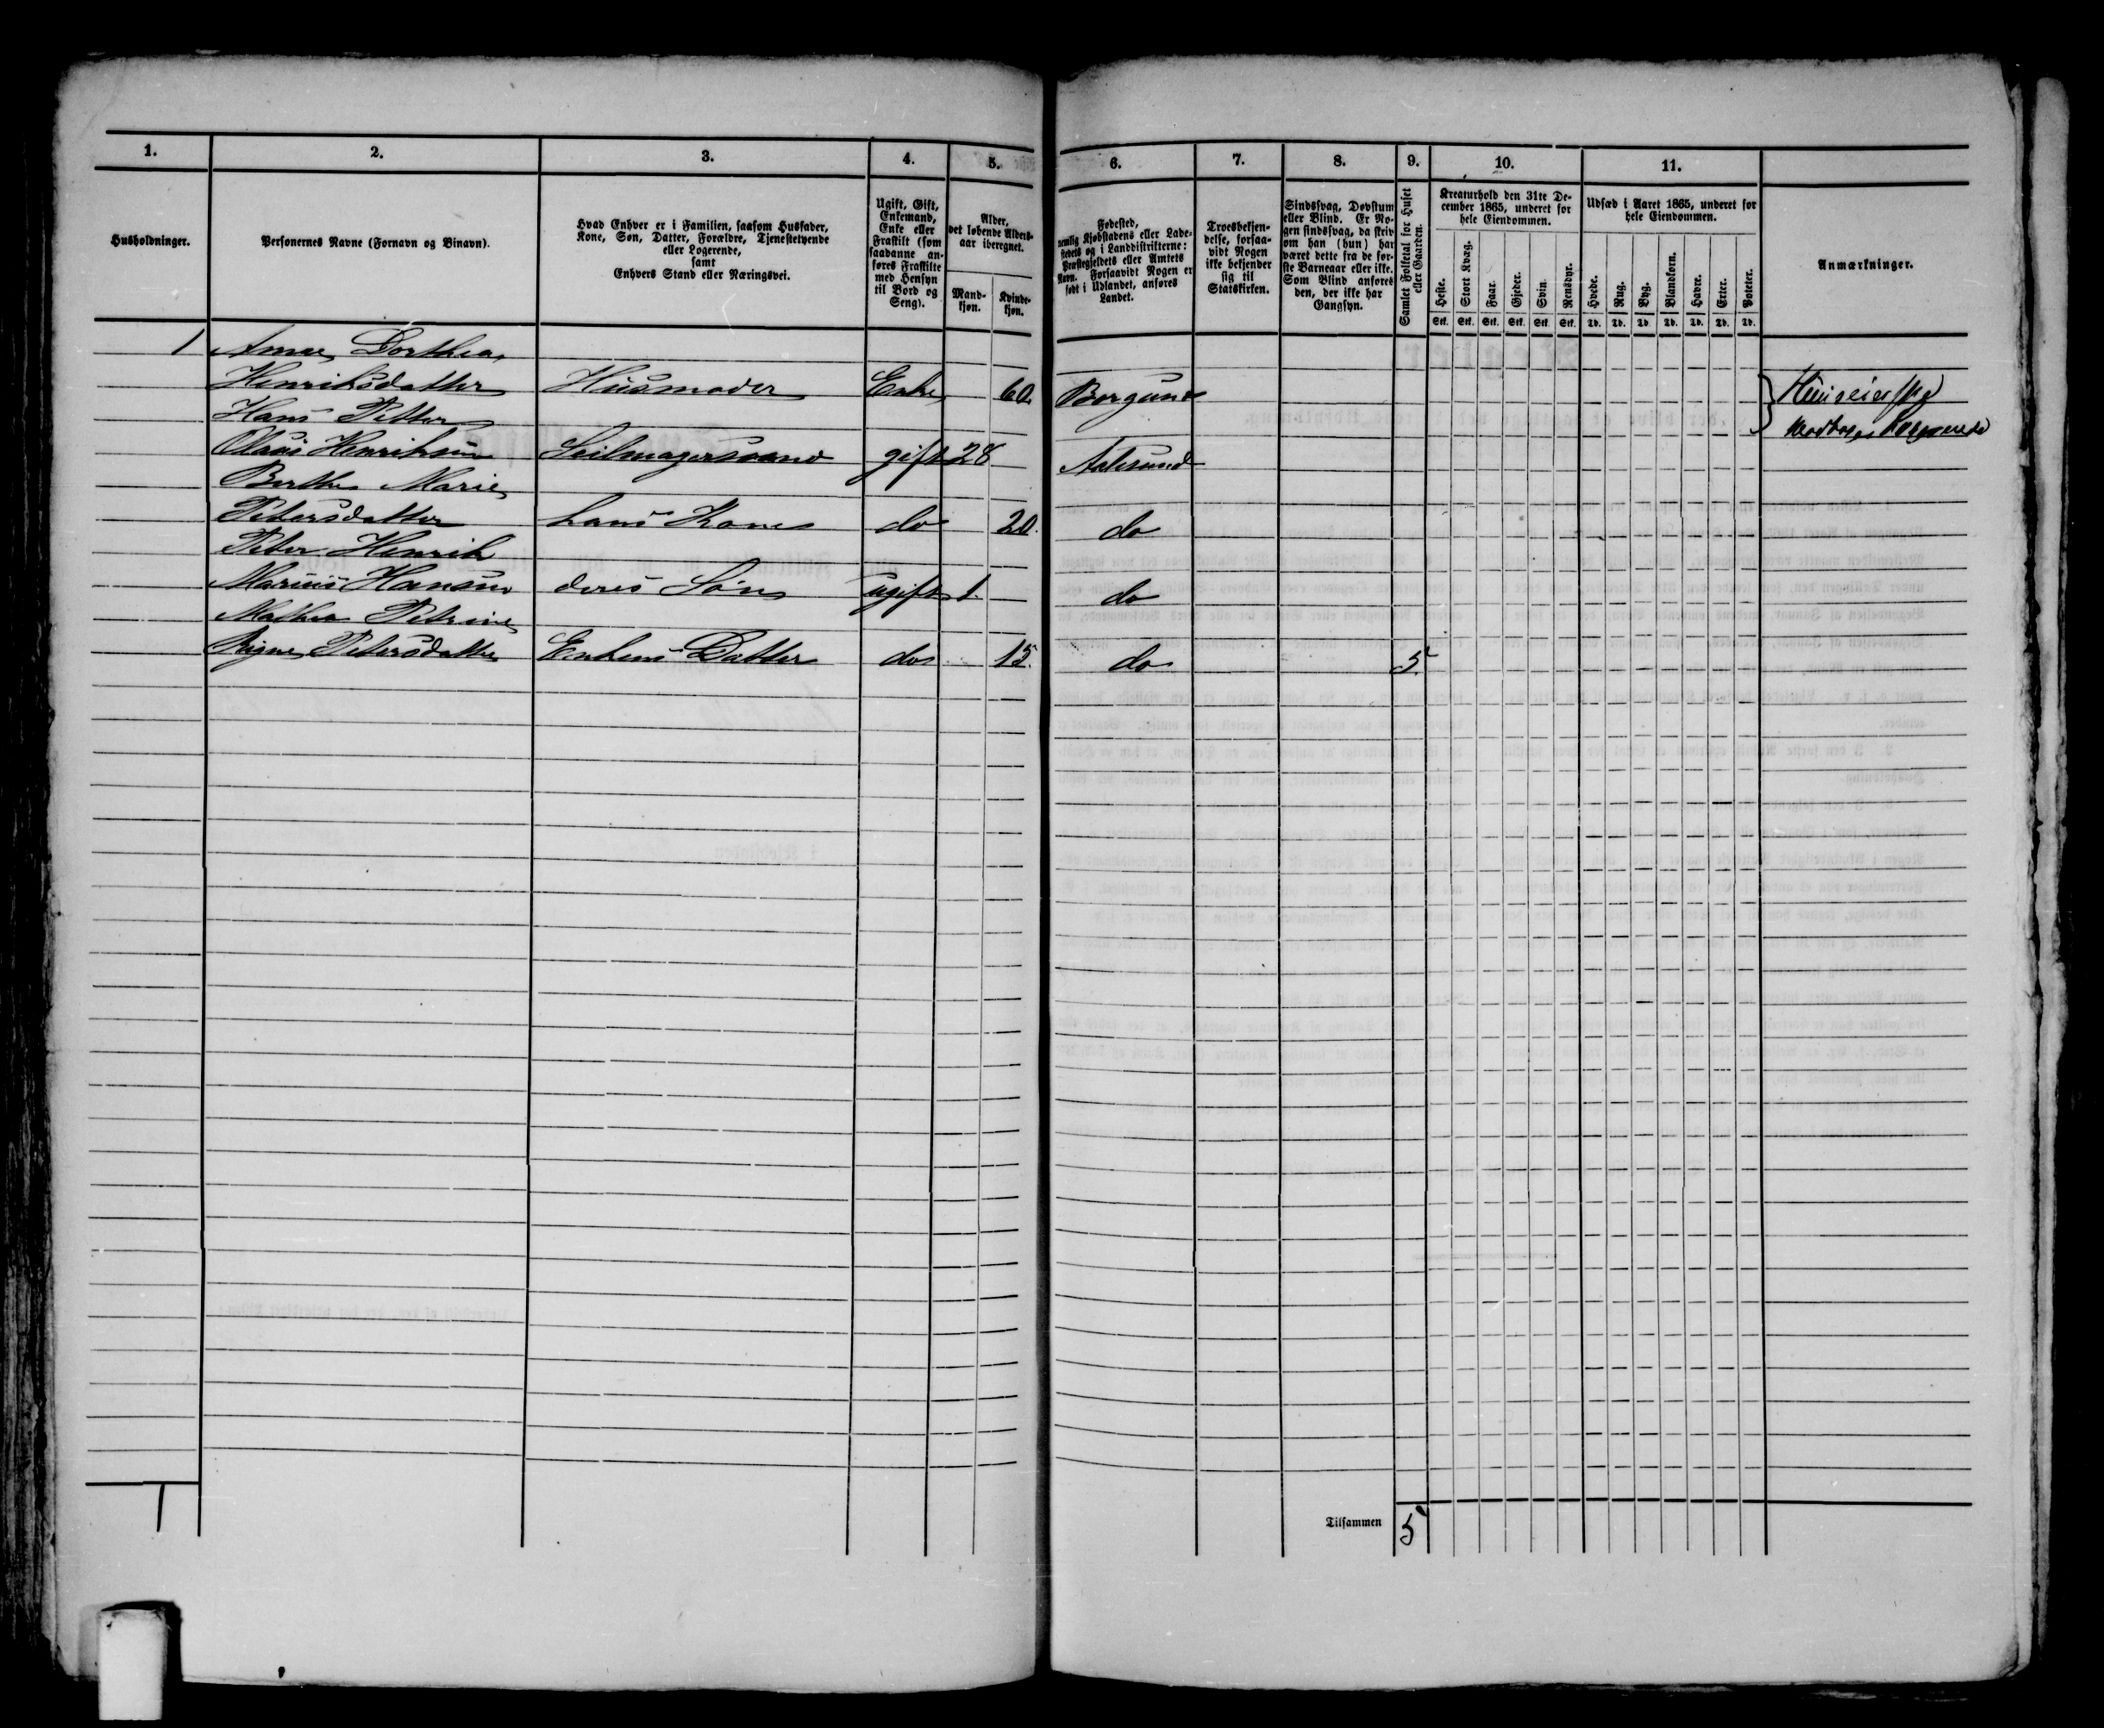 1. 2. 3. 4. 5. 6. 7. 8. 9. 10. 11.
Husholdninger.
Personernes Navne (Fornavn og Binavn).
Hvad Enhver er i Familien, saasom Husfader,
Kone, Søn, Datter, Forældre, Tjenestetyende
eller Logerende,
samt
Enhvers Stand eller Næringsvei.
Ugift, Gift,
Enkemand,
Enke eller
Fraskilt (som
saadanne an-
føres Fraskilte
med Hensyn
til Bord og
Seng).
Alder,
det løbende Alders-
aar iberegnet.
Mand-
kjøn.
Kvinde-
kjøn.
Fødested,
nemlig Kjøbstadens eller Lade-
stedets og i Landdistrikterne:
Præstegjeldets eller Amtets
Navn. Forsaavidt Nogen er
født i Udlandet, anføres
Landet.
Troesbekjen-
delse, forsaa-
vidt Nogen
ikke bekjender
sig til
Statskirken.
Sindssvag, Døvstum
eller Blind. Er No-
gen sindssvag, da skriv
om han (hun) har
været dette fra de før-
ste Barneaar eller ikke.
Som Blind anføres
den, der ikke har
Gangsyn.
Samlet Folketal for Huset
eller Gaarden.
Kreaturhold den 31te De-
cember 1865, underet for
hele Eiendommen.
Heste. Stort Kvæg. Faar. Gjeder. Svin. Rensdyr.
Stk. Stk. Stk. Stk. Stk. Stk.
Udsæd i Aaret 1865, underet for
hele Eiendommen.
Hvede. Rug. Byg. Blandkorn. Havre. Erter. Poteter.
Td. Td. Td. Td. Td. Td. Td.
Anmærkninger.
1 Anne Dorthea
Henriksdatter Husmoder Enke 60. Borgund
Hans Petter
Claus Henriksen Seilmagersvend gift 28 Aalesund
Berthe Marie
Petersdatter hans Kone do 20. do
Peter Henrik
Marius Hansen deres Søn ugift 1 do
Mathea Petrine
Signe Petersdatter Enkens Datter do 15. do 5.
1
Tilsammen 5